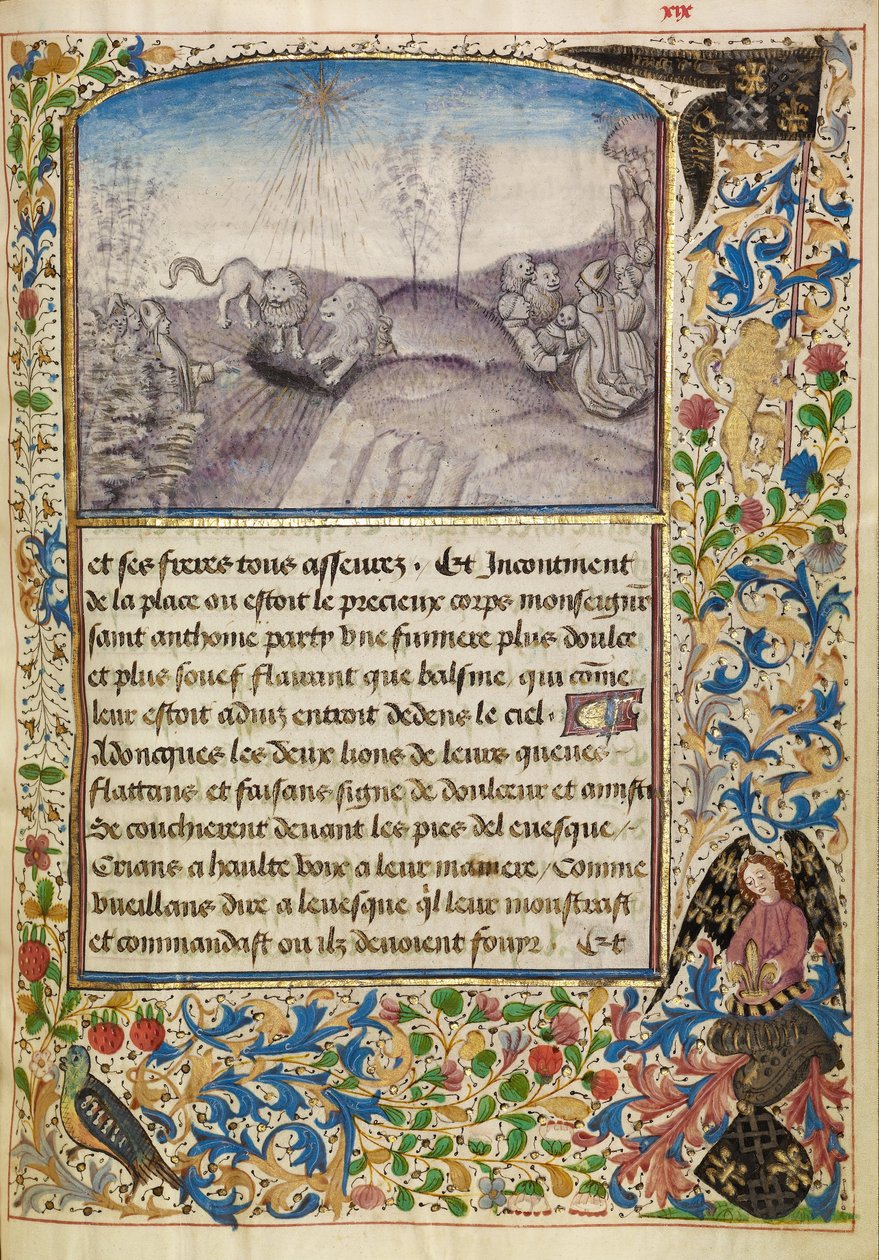 xix
et ses freres tous asseurez . Et Incontinent
de la place ou estoit le precieux corps monseignr̃
saint anthoine party vne fumiere plus doulce
et plus souef flairant que balsme, qui cõme
leur estoit aduiz entroit dedens le ciel.
Adoncques les deux lions de leurs queues
flattans et faisans signe de doulceur et amisti
Se couchierent deuant les pies del euesque /
Crians a haulte voix a leur maniere / Comme
vueillans dire a leuesque q̃l leur monstrast
et commandast ou ilz deuoient fouyr . Et